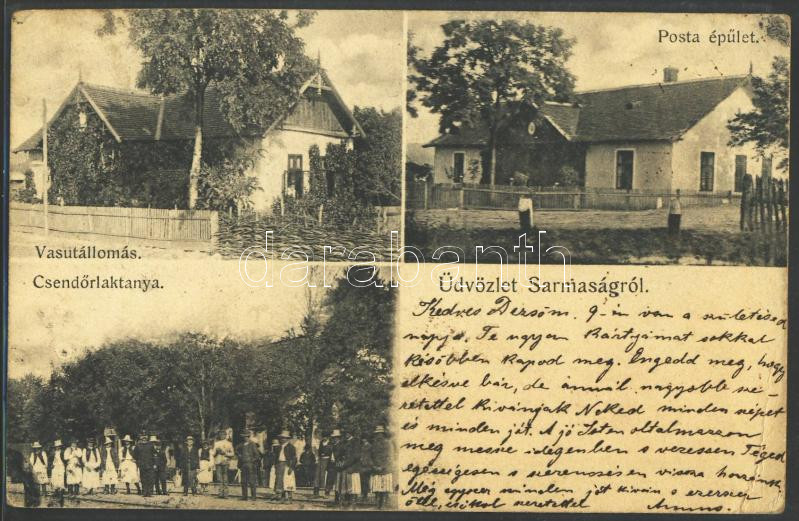 Posta épület.
Vasutállomás.
Csendőrlaktanya.
darabanth
Üdvözlet Sarmaságról.
Kedves Dezsőm. 9-én van a születésed
napja. Te ugyan kártyámat sokkal
későbben kapod meg. Engedd meg, hogy
elkésve bár, de annál nagyobb sze-
retettel kivánjak Neked minden szépet
és minden jót. A jó Isten oltalmazzon
meg messze idegenben s vezessen Téged
egészségesen s szerencsésen vissza hozzánk
Még egyszer minden jót kiván s ezerszer
ölel, csókol szeretettel